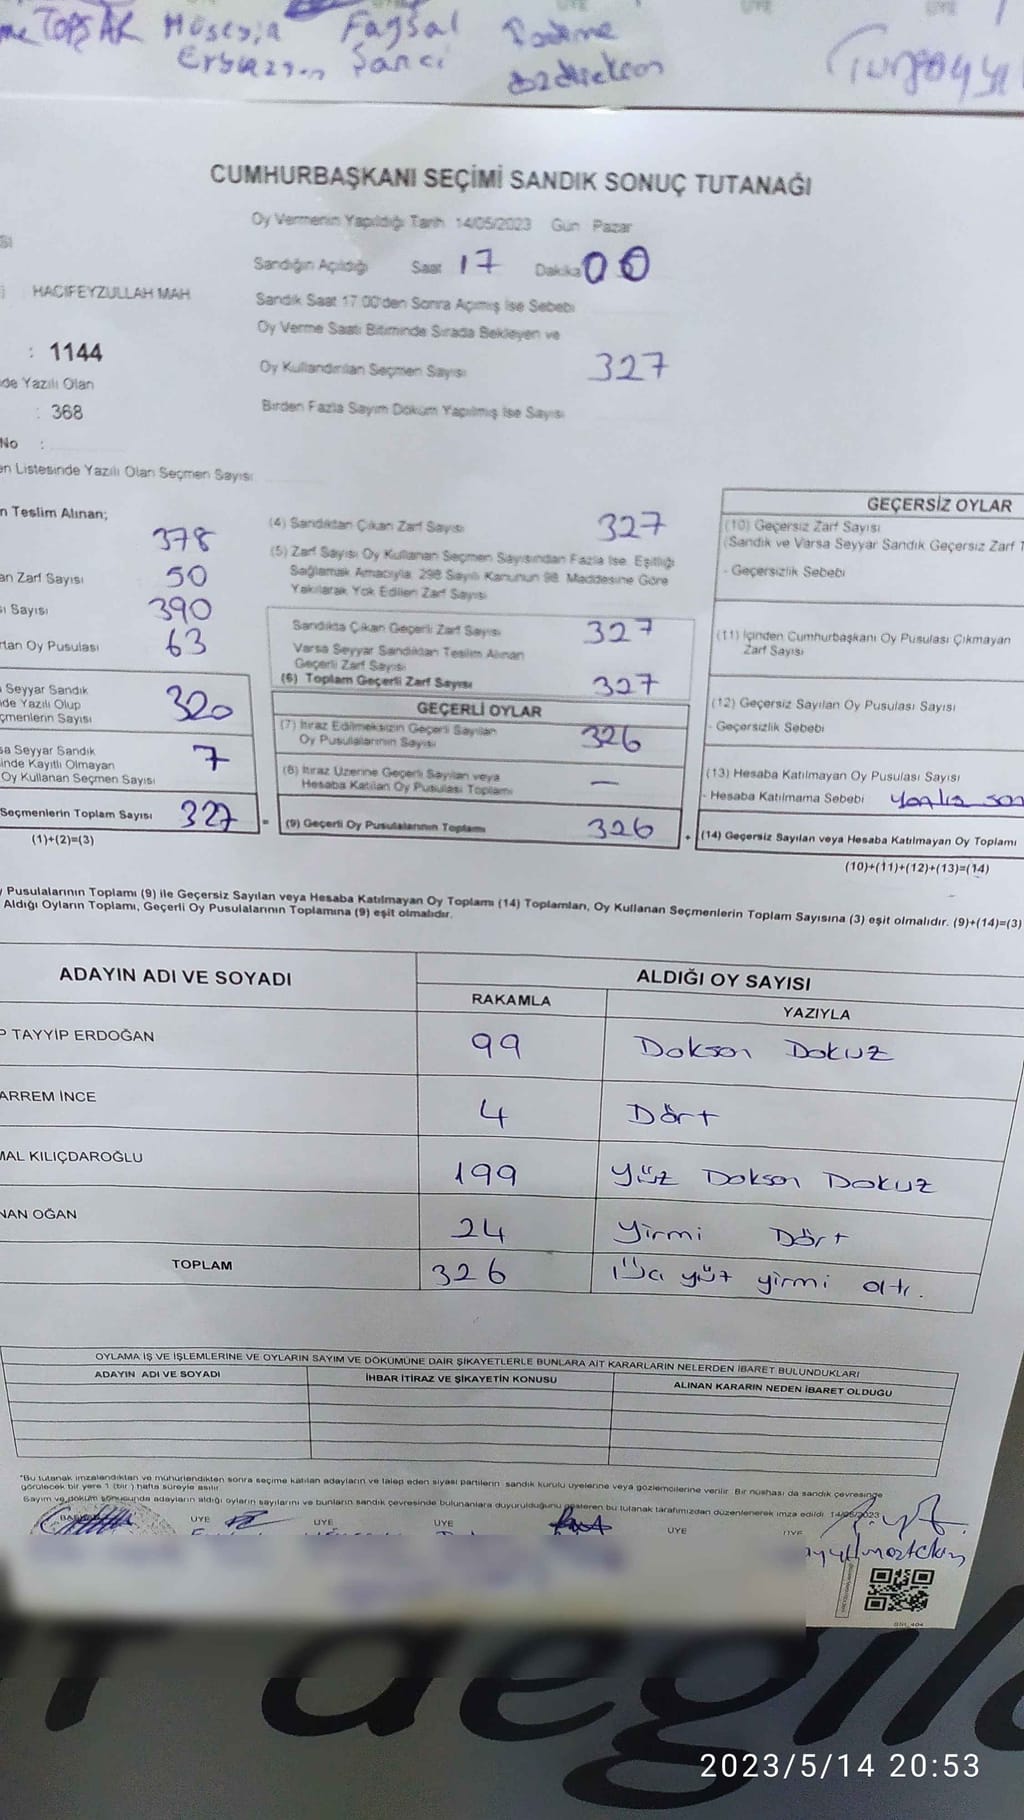 TOPSAK Hüseyin Faysal
Şancı
CUMHURBAŞKANI SEÇİMİ SANDIK SONUÇ TUTANAĞI
Oy Vermenin Yapıldığı Tarih 14/05/2023 Gün Pazar
Sandığın Açıldığı Saat 17 Dakika 00
HACIFEYZULLAH MAH
Sandık Saat 17:00'den Sonra Açımış İse Sebebi
Oy Verme Saati Bitiminde Sırada Bekleyen ve
: 1144
Oy Kullandırılan Seçmen Sayısı 327
de Yazılı Olan
: 368
Birden Fazla Sayım Döküm Yapılmış İse Sayısı
No :
en Listesinde Yazılı Olan Seçmen Sayısı
n Teslim Alınan;
378
an Zarf Sayısı 50
ı Sayısı 390
rtan Oy Pusulası 63
Seyyar Sandık
de Yazılı Olup
çmenlerin Sayısı 320
sa Seyyar Sandık
inde Kayıtlı Olmayan
Oy Kullanan Seçmen Sayısı 7
Seçmenlerin Toplam Sayısı 327
(1)+(2)=(3)
(4) Sandıktan Çıkan Zarf Sayısı 327
(5) Zarf Sayısı Oy Kullanan Seçmen Sayısından Fazla İse, Eşitliği
Sağlamak Amacıyla, 298 Sayılı Kanunun 98. Maddesine Göre
Yakılarak Yok Edilen Zarf Sayısı
Sandıkta Çıkan Geçerli Zarf Sayısı 327
Varsa Seyyar Sandıktan Teslim Alınan
Geçerli Zarf Sayısı
(6) Toplam Geçerli Zarf Sayısı 327
GEÇERLİ OYLAR
(7) İtiraz Edilmeksizin Geçerli Sayılan
Oy Pusulalarının Sayısı 326
(8) İtiraz Üzerine Geçerli Sayılan veya
Hesaba Katılan Oy Pusulası Toplamı —
= (9) Geçerli Oy Pusulalarının Toplamı 326 +
GEÇERSİZ OYLAR
(10) Geçersiz Zarf Sayısı
(Sandık ve Varsa Seyyar Sandık Geçersiz Zarf T
- Geçersizlik Sebebi
(11) İçinden Cumhurbaşkanı Oy Pusulası Çıkmayan
Zarf Sayısı
(12) Geçersiz Sayılan Oy Pusulası Sayısı
- Geçersizlik Sebebi
(13) Hesaba Katılmayan Oy Pusulası Sayısı
- Hesaba Katılmama Sebebi Yanlış
(14) Geçersiz Sayılan veya Hesaba Katılmayan Oy Toplamı
(10)+(11)+(12)+(13)=(14)
y Pusulalarının Toplamı (9) ile Geçersiz Sayılan veya Hesaba Katılmayan Oy Toplamı (14) Toplamları, Oy Kullanan Seçmenlerin Toplam Sayısına (3) eşit olmalıdır. (9)+(14)=(3)
Aldığı Oyların Toplamı, Geçerli Oy Pusulalarının Toplamına (9) eşit olmalıdır.
ADAYIN ADI VE SOYADI ALDIĞI OY SAYISI
RAKAMLA YAZIYLA
P TAYYİP ERDOĞAN 99 Doksan Dokuz
ARREM İNCE 4 Dört
MAL KILIÇDAROĞLU 199 Yüz Doksan Dokuz
NAN OĞAN 24 Yirmi Dört
TOPLAM 326 Üç yüz yirmi altı.
OYLAMA İŞ VE İŞLEMLERİNE VE OYLARIN SAYIM VE DÖKÜMÜNE DAİR ŞİKAYETLERLE BUNLARA AİT KARARLARIN NELERDEN İBARET BULUNDUKLARI
ADAYIN ADI VE SOYADI İHBAR İTİRAZ VE ŞİKAYETİN KONUSU ALINAN KARARIN NEDEN İBARET OLDUĞU
*Bu tutanak imzalandıktan ve mühürlendikten sonra seçime katılan adayların ve talep eden siyasi partilerin sandık kurulu üyelerine veya gözlemcilerine verilir. Bir nüshası da sandık çevresinde
görülecek bir yere 1 (bir) hafta süreyle asılır.
Sayım ve döküm sonucunda adayların aldığı oyların sayılarını ve bunların sandık çevresinde bulunanlara duyurulduğunu gösteren bu tutanak tarafımızdan düzenlenerek imza edildi. 14/05/2023
BAŞKAN ÜYE ÜYE ÜYE ÜYE ÜYE
değil
2023/5/14 20:53